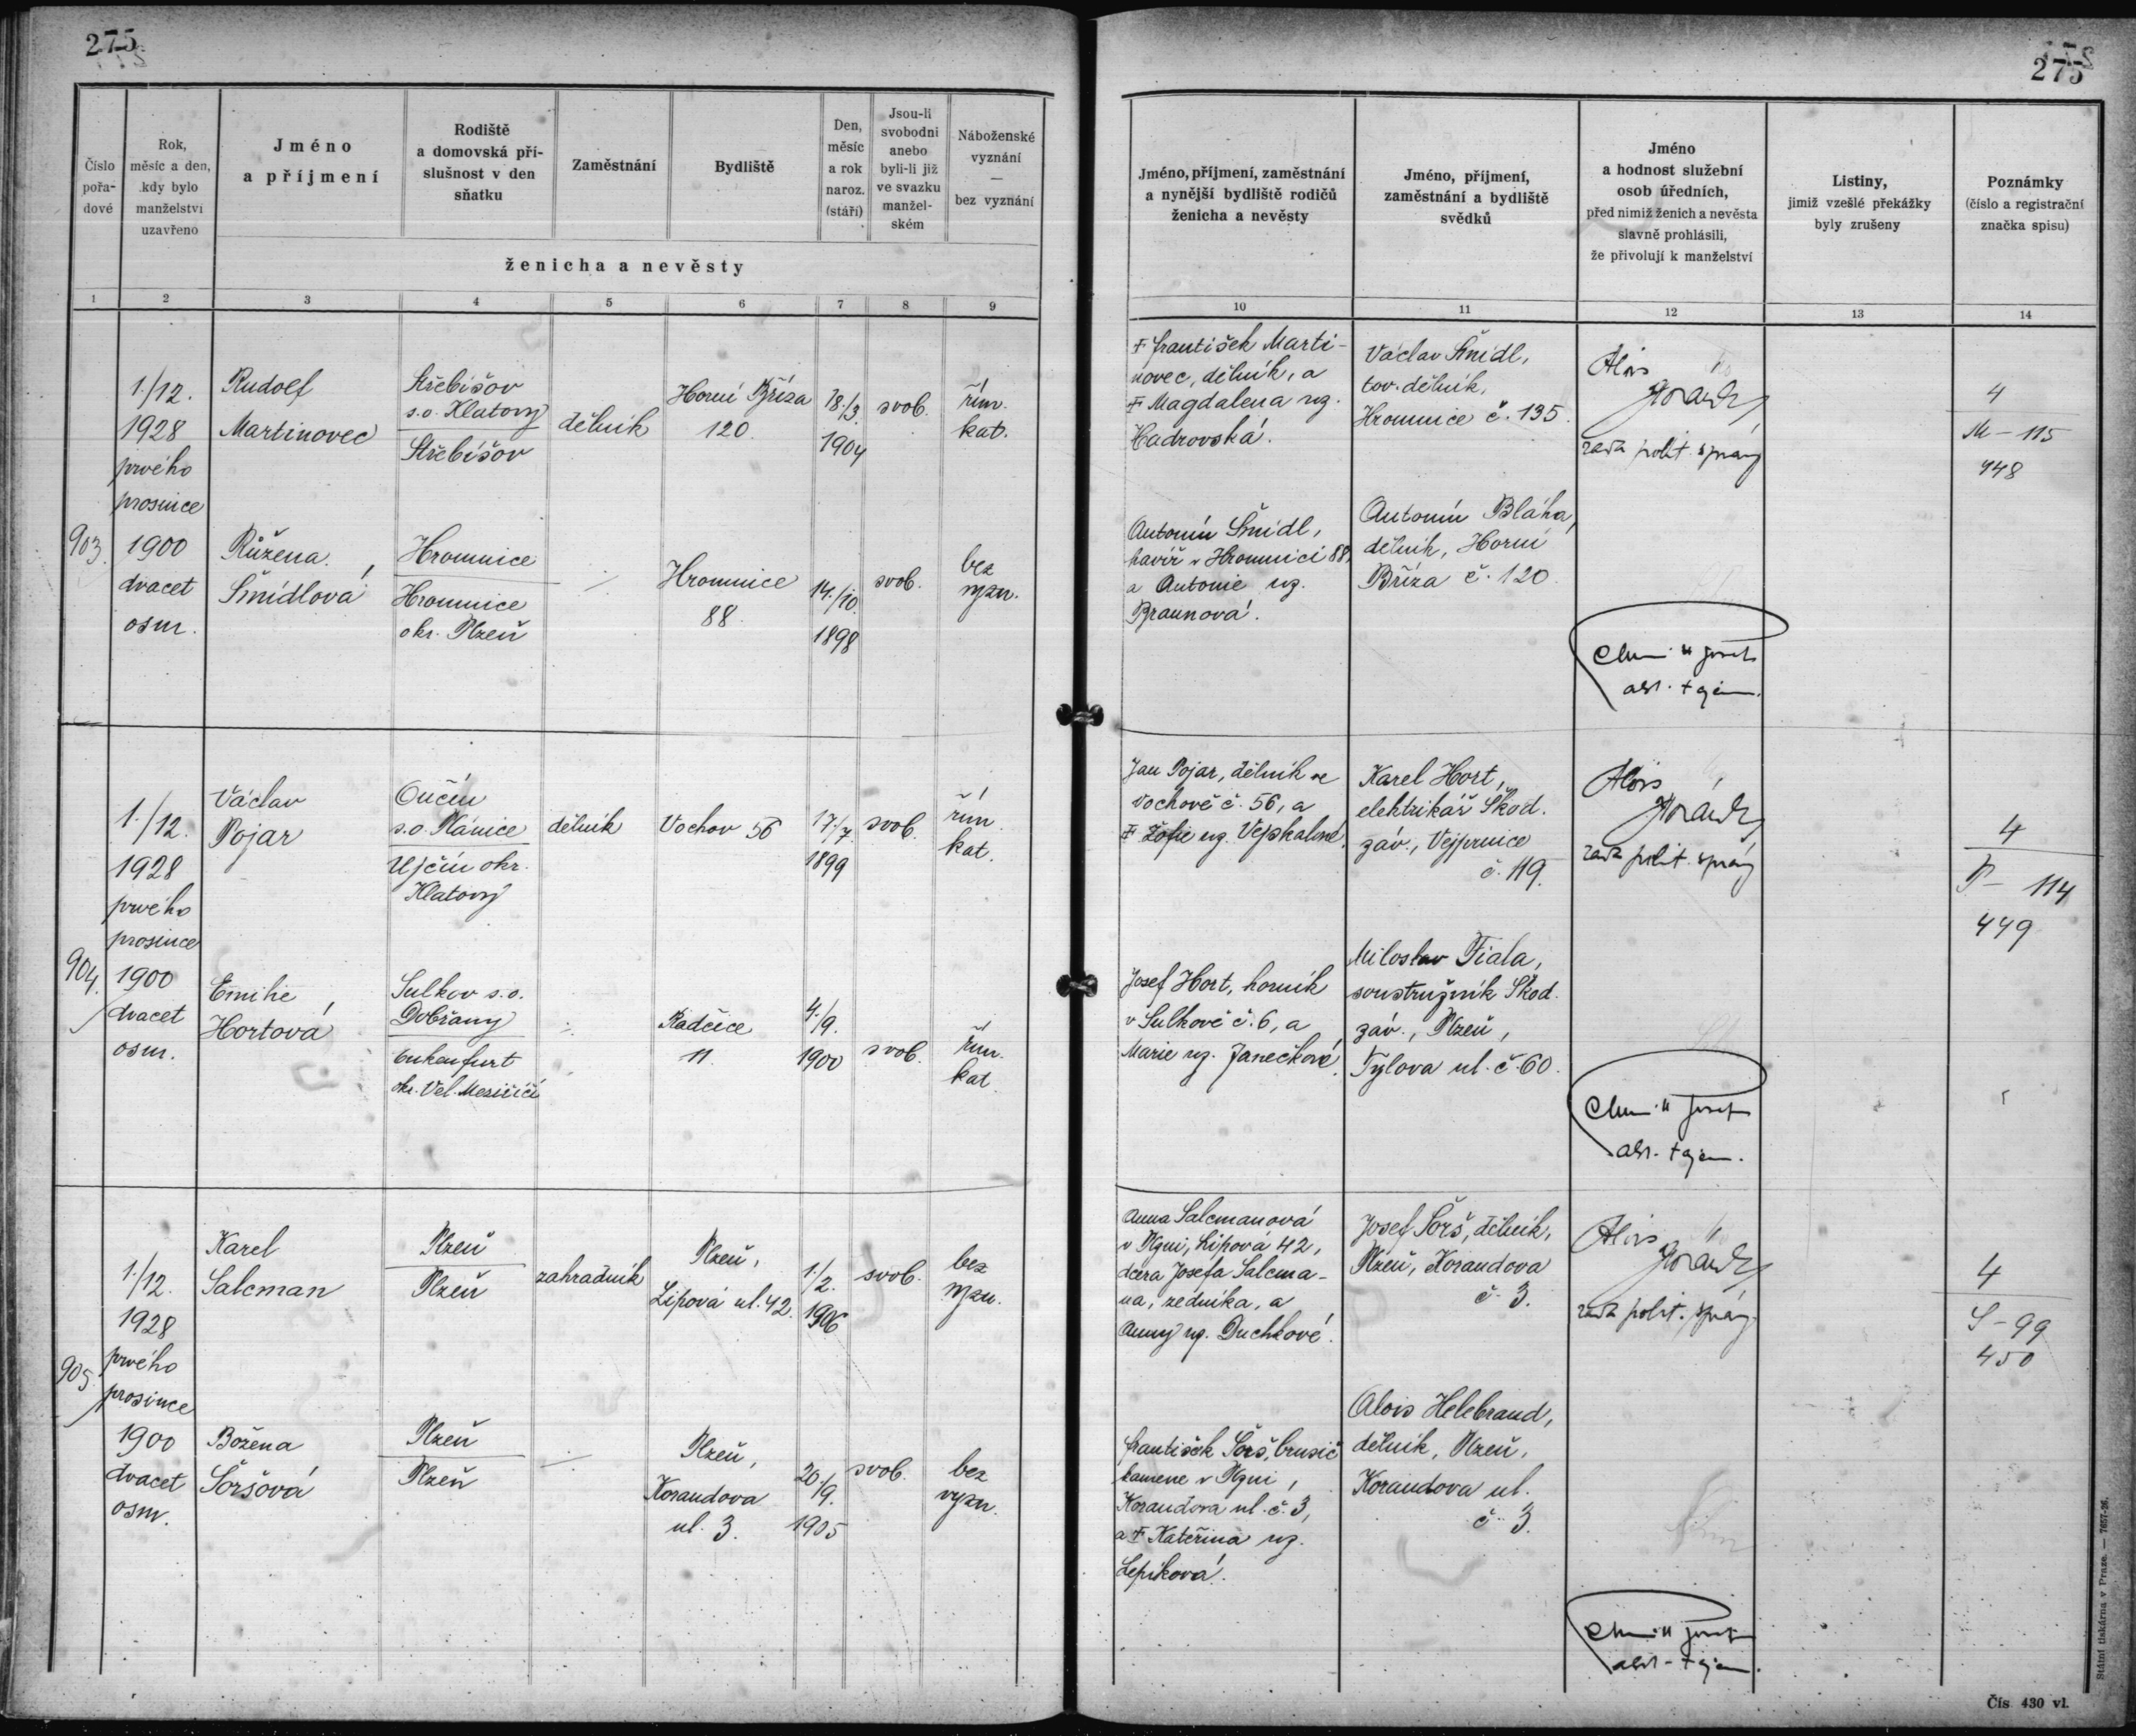 275
275
Číslo
pořa-
dové
Rok,
měsíc a den,
kdy bylo
manželství
uzavřeno
Jméno
a příjmení
Rodiště
a domovská pří-
slušnost v den
sňatku
Zaměstnání
Bydliště
Den,
měsíc
a rok
naroz.
(stáří)
Jsou-li
svobodni
anebo
byli-li již
ve svazku
manžel-
ském
Náboženské
vyznání
—
bez vyznání
ženicha a nevěsty
1 2 3 4 5 6 7 8 9
Jméno, příjmení, zaměstnání
a nynější bydliště rodičů
ženicha a nevěsty
Jméno, příjmení,
zaměstnání a bydliště
svědků
Jméno
a hodnost služební
osob úředních,
před nimiž ženich a nevěsta
slavně prohlásili,
že přivolují k manželství
Listiny,
jimiž vzešlé překážky
byly zrušeny
Poznámky
(číslo a registrační
značka spisu)
10 11 12 13 14
903.
1./12.
1928
prvého
prosince
1900
dvacet
osm.
Rudolf
Martinovec
Střebišov
s.o. Klatovy
Střebíšov
dělník
Horní Bříza
120.
18./3.
1904
svob.
řím.
kat.
Růžena
Šmídlová
Hromnice
Hromnice
okr. Plzeň
Hromnice
88.
14./10.
1898
svob.
bez
vyzn.
† František Marti-
novec, dělník, a
† Magdalena roz.
Hadrovská.
Antonín Šmídl,
havíř v Hromnici 88,
a Antonie roz.
Braunová.
Václav Šmídl,
tov. dělník,
Hromnice č. 135.
Antonín Bláha,
dělník, Horní
Bříza č. 120.
Alois
rada polit. správy
Josef
adv. tajem.
4
M – 115
948
904.
1./12.
1928
prvého
prosince
1900
dvacet
osm.
Václav
Pojar
Oučín
s.o. Plánice
Ujčín okr.
Klatovy
dělník
Vochov 56
17./7.
1899
svob.
řím.
kat.
Emilie
Hortová
Sulkov s.o.
Dobřany
okr. Vel. Meziříčí
Radčice
11.
4./9.
1900
svob.
řím.
kat.
Jan Pojar, dělník ve
Vochově č. 56, a
† Žofie roz. Vejskalové.
Josef Hort, horník
v Sulkově č. 6, a
Marie roz. Janečková.
Karel Hort,
elektrikář Škod.
záv., Vejprnice
č. 119.
Miloslav Fiala,
soustružník Škod.
záv., Plzeň,
Tylova ul. č. 60.
Alois
rada polit. správy
Josef
adv. tajem.
4
P – 114
449
905.
1./12.
1928
prvého
prosince
1900
dvacet
osm.
Karel
Salcman
Plzeň
Plzeň
zahradník
Plzeň,
Lipová ul. 42.
1./2.
1906
svob.
bez
vyzn.
Božena
Šoršová
Plzeň
Plzeň
Plzeň,
Korandova
ul. 3.
20./9.
1905
svob.
bez
vyzn.
Anna Salcmanová
v Plzni, Lipová 42,
dcera Josefa Salcma-
na, zedníka, a
Anny roz. Duchkové.
František Šorš, brusič
kamene v Plzni,
Korandova ul. č. 3,
a † Kateřina roz.
Lepíková.
Josef Šorš, dělník,
Plzeň, Korandova
č. 3.
Alois Helebrand,
dělník, Plzeň,
Korandova ul.
č. 3.
Alois
rada polit. správy
Josef
adv. tajem.
4
S – 99
450
Státní tiskárna v Praze. — 7657-26.
Čís 430 vl.